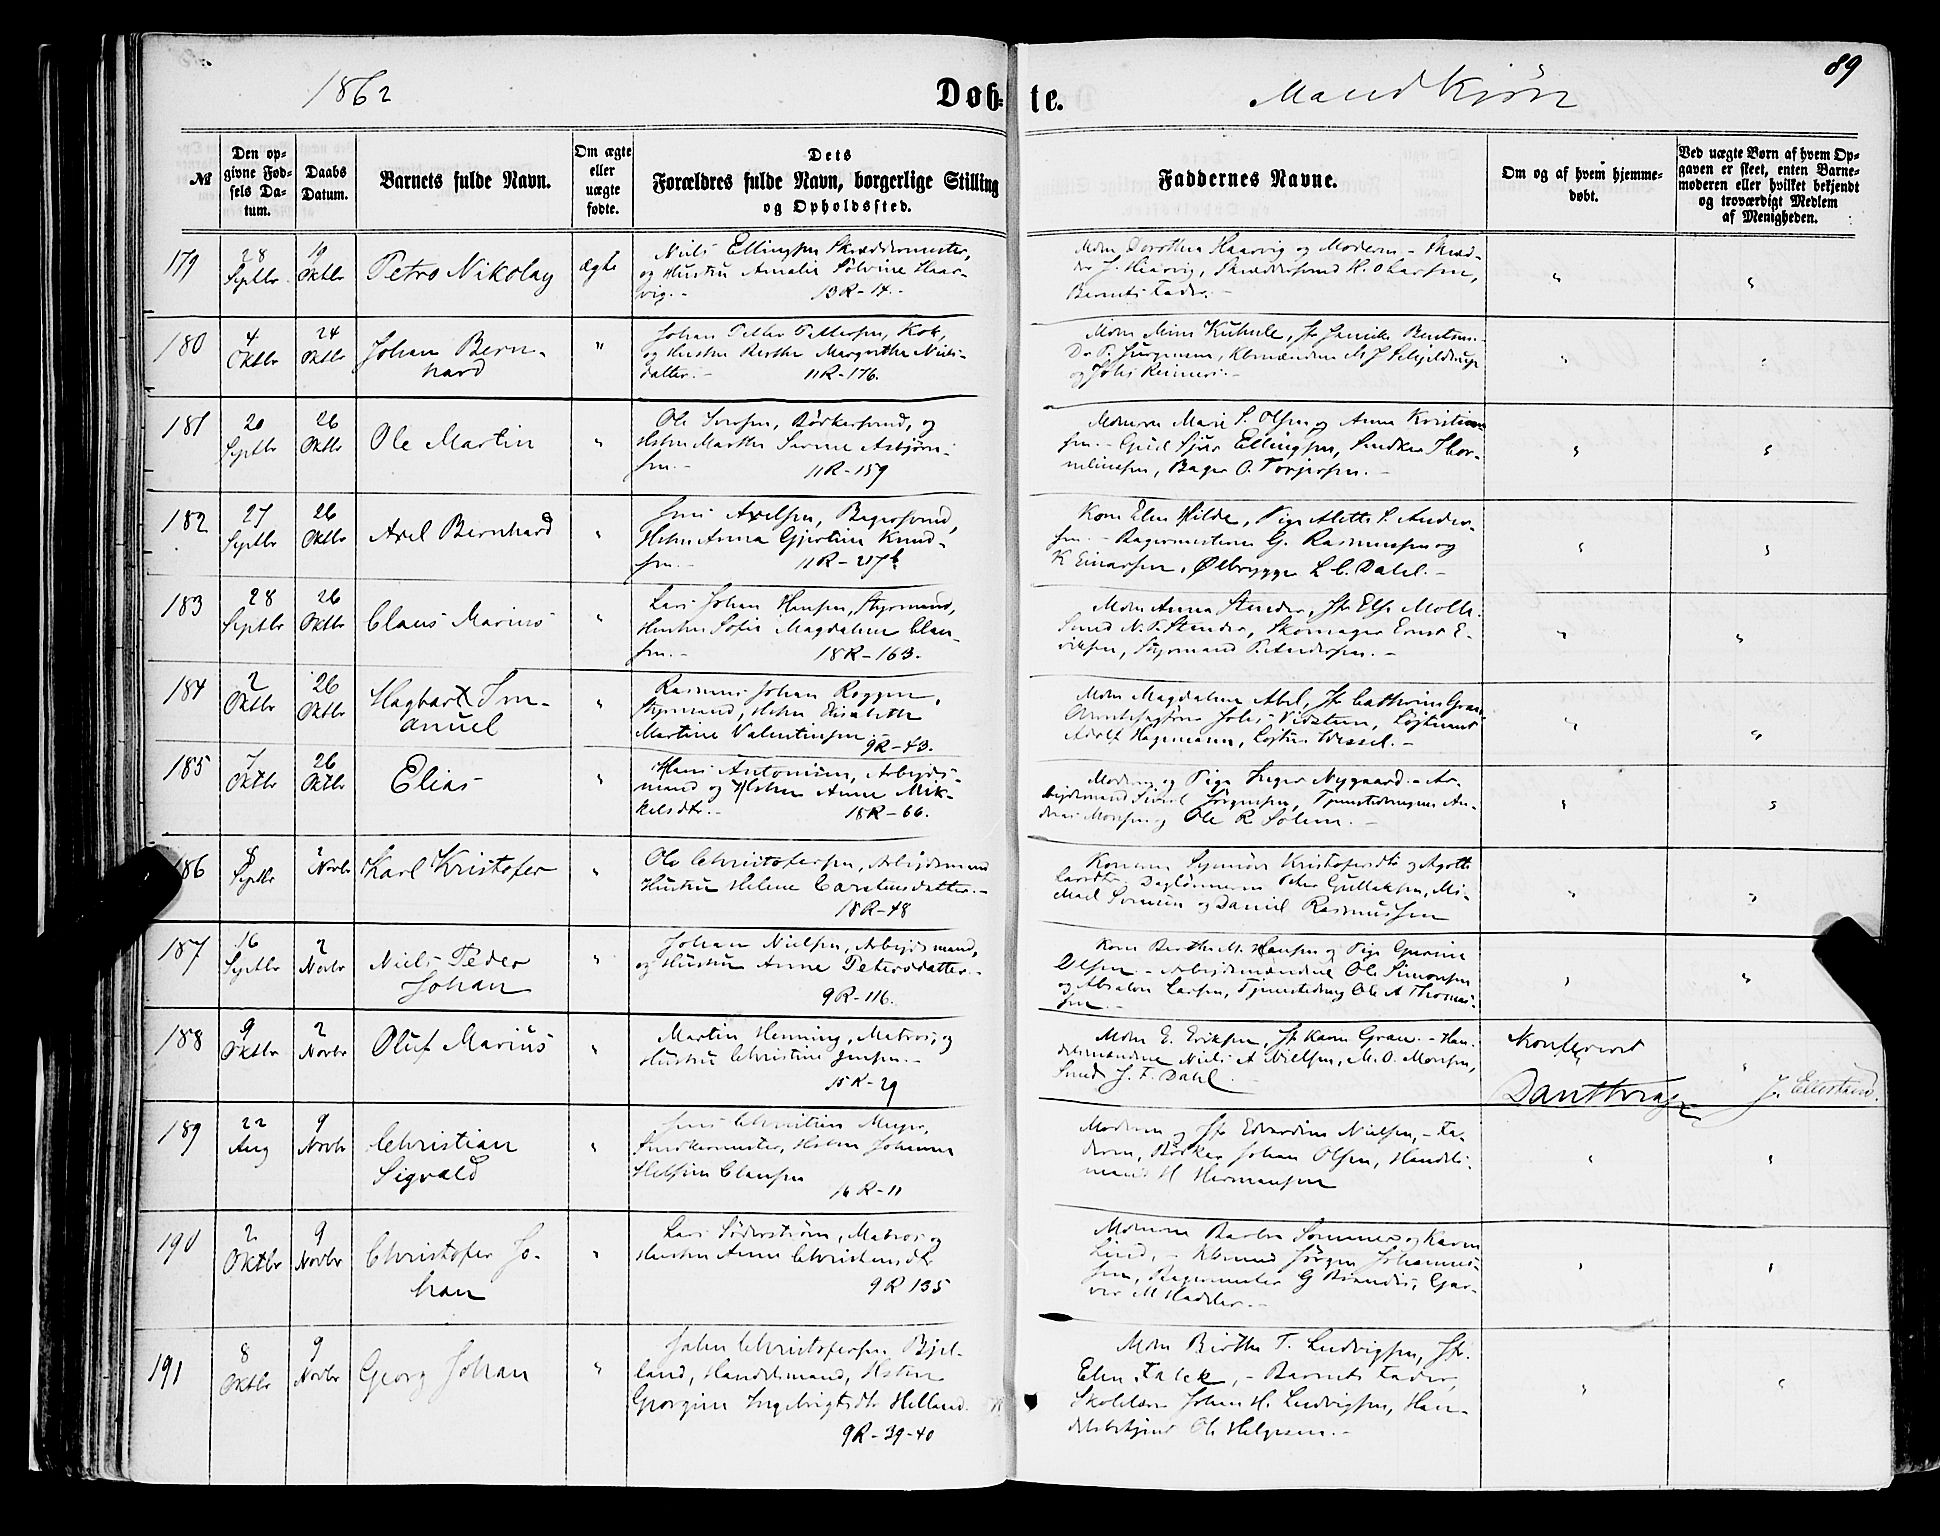 89
1862 Døb- te. Mandkjøn
№
Den opgivne Fødsels Datum.
Daabs Datum.
Barnets fulde Navn.
Om ægte eller uægte fødte.
Dets Forældres fulde Navn, borgerlige Stilling og Opholdssted.
Faddernes Navne.
Om og af hvem hjemmedøbt.
Ved uægte Børn af hvem Opgaven er skeet, enten Barnemoderen eller hvilket bekjendt og troværdigt Medlem af Menigheden.
179 28 Septbr 19 Oktbr Petro Nikolay ægte
Niels Ellingsen Skræddermester,
og Hustru Amalia Solvine Haar-
vig.- 13R-14.-
Mdm Dorothea Haarvig og Moderen - Skræd-
der J. Haarvig, Skræddersvend H. O Larsen,
Barnets Fader.-
180 4 Oktbr 24 Oktbr Johan Bern-
hard "
Johan Petter Pettersen, Kok,
og Hustru Berthe Margrethe Niels-
datter.- 11R-176.
Mdm Mina Kuhnle, Jfr Bentsen.-
D. P. Jürgensen, Kbmændene M J Schjeldrup
og Johs Reimers.-
181 20 Septbr 26 Oktbr Ole Martin "
Ole Bødkersvend, og
Hstru Marthe Asbjørn-
sen.- 11R-159
Mdmerne Marie S. Olsen og Anna Kristian-
sen.- Ellingsen, Snedker Thor-
Bager O. Torjersen.-
182 27 Septbr 26 Oktbr Axel Bernhard "
Jens Axelsen, Bagersvend,
Hstru Anna Gjertine Knud-
sen.- 11R-207b
Kone Elen Hilde, Pige Alette S. Ander-
sen.- Bagermesterne G. Rasmussen og
K Einarsen, Ølbrygger L C. Dahl.-
183 28 Septbr 26 Oktbr Claus Marius "
Lars Johan Hansen, Styrmand,
Hustru Sofie Magdalene Clau-
sen.- 18R-163.
Mdm Anna Stender, Jfr Else Moll.
Smed N. P. Stender, Skomager Ernst E-
riksen, Styrmand P. Andersen.-
184 2 Oktbr 26 Oktbr Hagbart Im-
anuel "
Rasmus Johan Roggen,
Styrmand, Hstru Elisabeth
Martine Valentinsen.- 9R-43.
Mdm Magdalena Abel, Jfr Cathrine Gran
Johs Vidsteen, Løjtnant
Adolf Hagemann, Løjtn. Wessel.-
185 7 Oktbr 26 Oktbr Elias "
Hans Antonisen, Arbejds-
mand og Hstru Anne Mik-
kelsdtr.- 18R-66.
Moderen og Pige Inger Nygaard.- Ar-
bejdsmand Jørgensen, Tjenestedrengene An-
dreas Monsen og Ole R Solem.-
186 8 Septbr 2 Novbr Karl Kristofer "
Ole Christofersen, Arbejdsmand
Hustru Helene Carstensdatter.-
18R-48
Konerne Synnøve Kristofersdtr og Agathe
Larsdtr. Daglønnerne Peter Gullaksen, Mi-
kael og Daniel Rasmussen
187 16 Septbr 2 Novbr Niels Peder
Johan "
Johan Nielsen, Arbejdsmand,
og Hustru Anne Petersdatter.-
9R-116.
Kone Berthe M. Hansen og Pige Gurine
Olsen.- Arbejdsmændene Ole Simonsen
og Absalon Larsen, Tjenestedreng Ole A Thomas-
sen.-
188 9 Oktbr 2 Novbr Oluf Marius "
Martin Henning, Matros, og
Hustru Christine Jensen.-
15R-29
Mdm E. Eriksen, Jfr Karen Gran.- Han-
delsmændene Niels A Nielsen, M. O. Monsen,
Smed J. F. Dahl.
Konfereret
J. Ellestand.
189 22 Aug 9 Novbr Christian
Sigvald "
Jens Christian Meyer,
Snedkermester, Hstru Johanna
Clausen
16R-11
Moderen og Jfr Edvardine Nielsen,- Fa-
deren, Bødker Johan Olsen, Handels-
mand H Hermansen
190 2 Oktbr 9 Novbr Christofer Jo-
han "
Lars Söderström, Matros og
Hustru Anne Christensdtr
9R 135
Mdmerne Barbra Sommer og Karen
Lind,- Kbmand Jørgen Johannes-
sen, Bagermester G Brandis, Gar-
ver M Hadeler.-
191 8 Oktbr 9 Novbr Georg Johan "
John Christofersen Bjel-
land, Handelsmand, Hstru
Georgine Ingebrigtsdtr Helland.
9R-39-40
Mdm Birthe T. Ludvigsen, Jfr.
Elen Falck,- Barnets Fader,
Skolelærer Johan H. Ludvigsen, Han-
delsbetjent Ole Helgesen.-